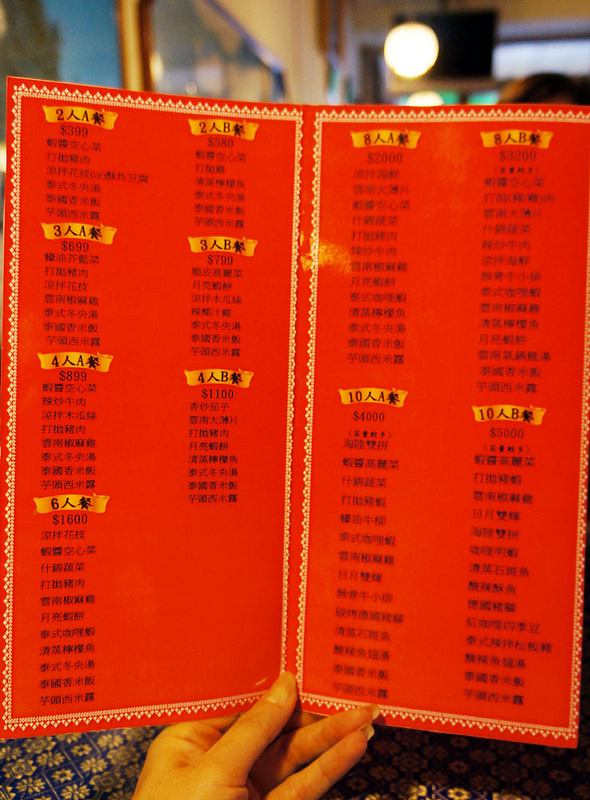 2人A餐
$399
蝦醬空心菜
打拋豬肉
涼拌花枝(or)酥炸豆腐
泰式冬央湯
泰國香米飯
芋頭西米露
3人A餐
$699
蠔油芥藍菜
打拋豬肉
涼拌花技
雲南椒麻雞
泰式冬央湯
泰國香米飯
芋頭西米露
4人A餐
$899
蝦醬空心菜
辣炒牛肉
涼拌木瓜絲
打拋豬肉
雲南椒麻雞
泰式冬央湯
泰國香米飯
芋頭西米露
6人餐
$1600
涼拌花技
蝦醬空心菜
什錦蔬菜
打拋豬肉
雲南椒麻雞
月亮蝦餅
泰式咖哩蝦
清蒸檸檬魚
泰式冬央湯
泰國香米飯
芋頭西米露
2人B餐
$580
蝦醬空心菜
打拋雞
清蒸檸檬魚
泰式冬央湯
泰國香米飯
芋頭西米露
3人B餐
$799
脆皮高麗菜
月亮蝦餅
涼拌木瓜絲
辣椰汁雞
泰式冬央湯
泰國香米飯
芋頭西米露
4人B餐
$1100
香炒茄子
雲南大薄片
打拋豬肉
月亮蝦餅
清蒸檸檬魚
泰式冬央湯
泰國香米飯
芋頭西米露
8人A餐
$2000
涼拌海鮮
雲南大薄片
蝦醬空心菜
什錦蔬菜
打拋豬肉
辣炒牛肉
雲南椒麻雞
月亮蝦餅
泰式咖哩蝦
清蒸檸檬魚
泰式冬央湯
泰國香米飯
芋頭西米露
10人A餐
$4000
(菜量較多)
海陸雙拼
蝦醬高麗菜
什錦蔬菜
打拋豬蝦
蠔油牛柳
泰式咖哩蝦
雲南椒麻雞
日月雙輝
無骨牛小排
碳烤德國豬腳
清蒸石斑魚
酸辣魚翅湯
泰國香米飯
芋頭西米露
8人B餐
$3200
(菜量較多)
蝦醬空心菜
打拋(豬/雞)肉
雲南大薄片
什錦蔬菜
辣炒牛肉
涼拌海鮮
無骨牛小排
泰式咖哩蝦
雲南椒麻雞
清蒸檸檬魚
月亮蝦餅
雲南氣鍋雞湯
泰國香米飯
芋頭西米露
10人B餐
$5000
(菜量較多)
蝦醬高麗菜
打拋豬蝦
雲南椒麻雞
日月雙輝
海陸雙拼
咖哩明蝦
清蒸石斑魚
酸辣酥魚
德國豬腳
紅咖哩四季豆
泰式辣拌松板豬
酸辣魚翅湯
泰國香米飯
芋頭西米露